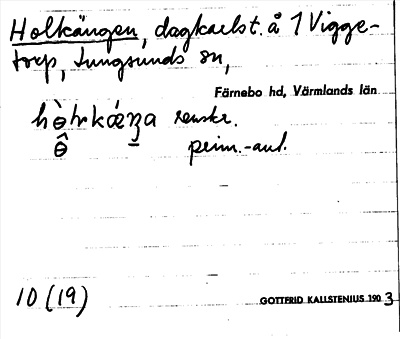 Holkängen, dagkarlst. å 1 Vigge-
torp, Lungsunds sn,
Färnebo hd, Värmlands län
renskr.
prim.-aul.
10 (19)
GOTTFRID KALLSTENIUS 1903